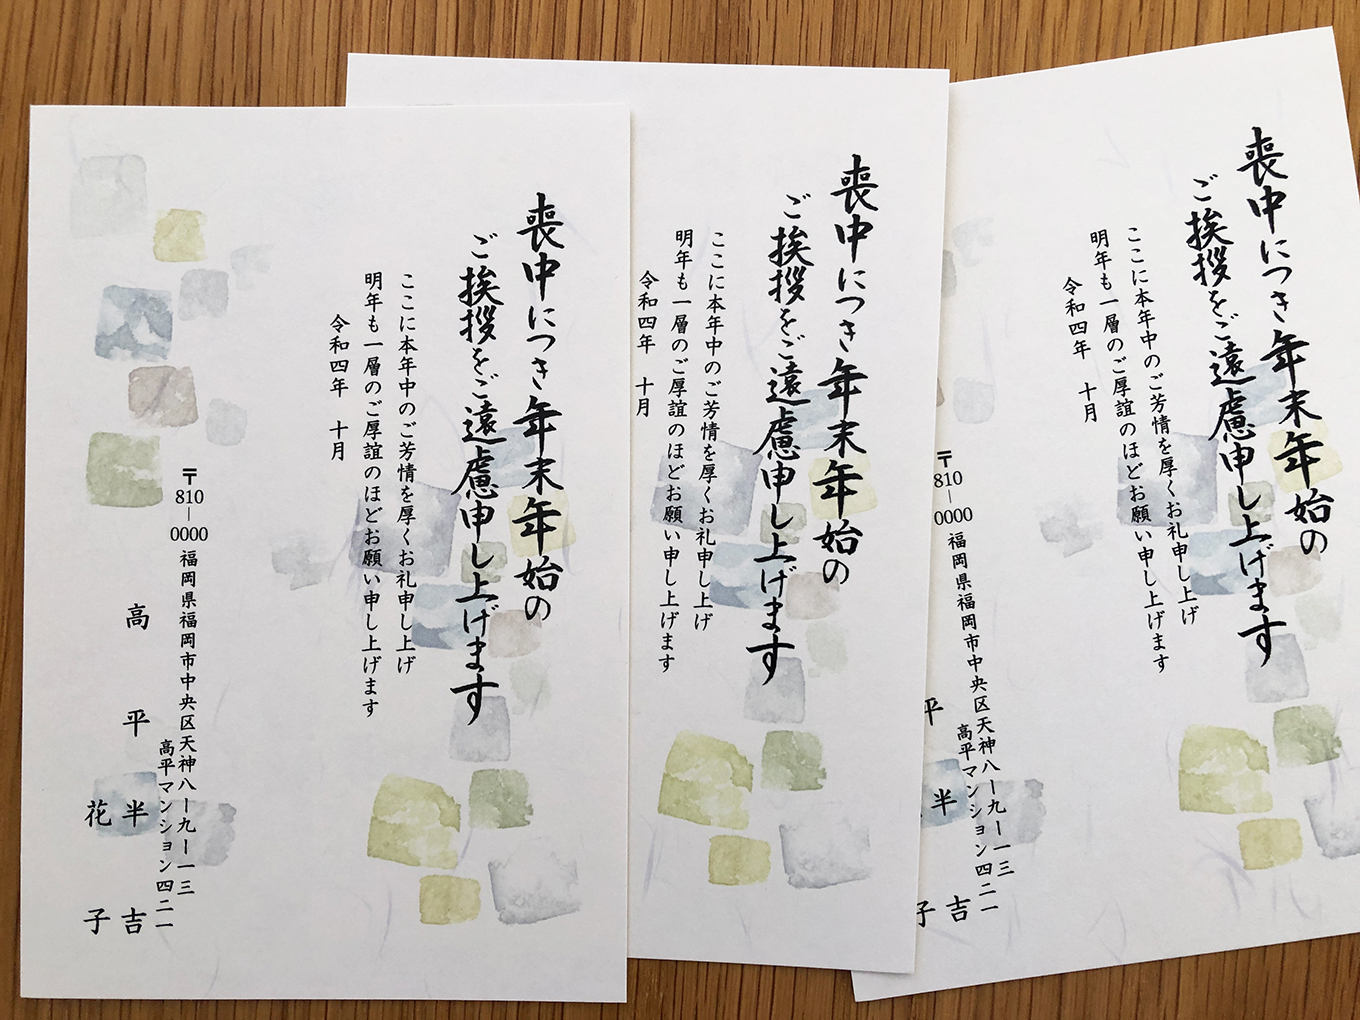 喪中につき年末年始の
ご挨拶をご遠慮申し上げます
ここに本年中のご芳情を厚くお礼申し上げ
明年も一層のご厚誼のほどお願い申し上げます
令和四年 十月
〒810-0000 福岡県福岡市中央区天神八ー九ー一三
高平マンション四二一
高平半吉
花子
喪中につき年末年始の
ご挨拶をご遠慮申し上げます
ここに本年中のご芳情を厚くお礼申し上げ
明年も一層のご厚誼のほどお願い申し上げます
令和四年 十月
喪中につき年末年始の
ご挨拶をご遠慮申し上げます
ここに本年中のご芳情を厚くお礼申し上げ
明年も一層のご厚誼のほどお願い申し上げます
令和四年 十月
〒810-0000 福岡県福岡市中央区天神八ー九ー一三
高平マンション四二一
平半吉
子